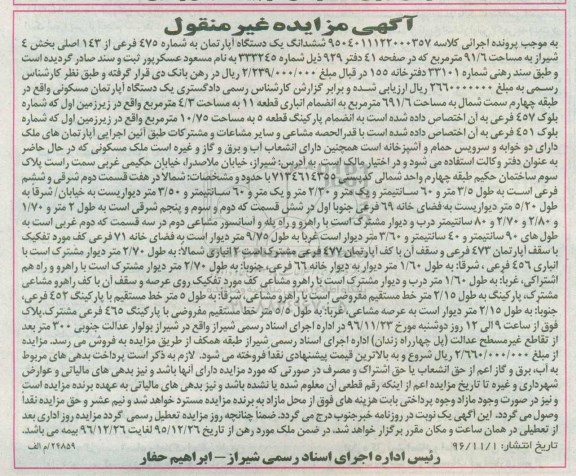 آگهی مزایده غیر منقول
به موجب پرونده اجرائی کلاسه ۹۵۰۴۰۱۱۱۲۲۰۰۰۳۵۷ ششدانگ یک دستگاه آپارتمان به شماره ۴۷۵ فرعی از ۱۴۳ اصلی بخش ۴
شیراز به مساحت ۹۱/۶ مترمربع که در صفحه ۴۱ دفتر ۹۲۹ ذیل شماره ۳۳۲۲۴۵ به نام مسعود عسکرپور ثبت و سند صادر گردیده است
و طبق سند رهنی شماره ۳۳۱۰۱ دفترخانه ۱۵۵ در قبال مبلغ ۲/۲۳۹/۰۰۰/۰۰۰ ریال در رهن بانک دی قرار گرفته و طبق نظر کارشناس
رسمی به مبلغ ۲۶۶۰۰۰۰۰۰۰ ریال ارزیابی شده و برابر گزارش کارشناس رسمی دادگستری یک دستگاه آپارتمان مسکونی واقع در
طبقه چهارم سمت شمال به مساحت ۶۹۱/۶ مترمربع به انضمام انباری قطعه ۱۱ به مساحت ۴/۳ مترمربع واقع در زیرزمین اول که شماره
بلوک ۴۵۷ فرعی به آن اختصاص داده شده است به انضمام پارکینگ قطعه ۵ به مساحت ۱۰/۷۵ مترمربع واقع در زیرزمین اول که شماره
بلوک ۴۵۱ فرعی به آن اختصاص داده شده است با قدرالحصه مشاعی و سایر مشاعات و مشترکات طبق آئین اجرایی آپارتمان های ملک
دارای دو خوابه و سرویس حمام و آشپزخانه است همچنین دارای انشعاب آب و برق و گاز و غیره است ملک مسکونی که در حال حاضر
به عنوان دفتر وکالت استفاده می شود و در اختیار مالک است به آدرس: شیراز، خیابان ملاصدرا، خیابان حکیمی غربی سمت راست پلاک
سوم ساختمان حکیم طبقه چهارم واحد شمالی کدپستی ۷۱۳۴۶۱۴۳۵۵ با حدود و مشخصات: شمالا در هفت قسمت دوم شرقی و ششم
فرعی است به طول ۳/۵ متر و ۶۰ سانتیمتر و یک متر و ۲/۳۰ متر و یک متر و ۶۰ سانتیمتر و ۳/۵۰ متر دیواریست به خیابان/ شرقا به
طول ۵/۲۰ متر دیواریست به فضای خانه ۶۹ فرعی جنوبا اول در شش قسمت که دوم و سوم و پنجم شرقی است به طول ۲ متر و ۱/۷۰
و ۲/۸۰ و ۲/۷۰ و ۸۰ سانتیمتر درب و دیوار مشترک است با راهرو و راه پله و آسانسور مشاعی دوم در سه قسمت که دوم غربی است به
طول های ۹۰ سانتیمتر و ۴۰ سانتیمتر و ۳/۶۰ متر دیوار است غربا به طول ۹/۷۵ متر دیوار است به فضای خانه ۷۱ فرعی کف مورد تفکیک
با سقف آپارتمان ۴۷۳ فرعی و سقف آن با کف آپارتمان ۴۷۷ فرعی مشترک است ۲ انباری شمالا: به طول ۲/۷۰ متر دیوار مشترک است با
انباری ۴۵۶ فرعی، شرقا: به طول ۱/۶۰ متر دیوار به دیوار خانه ۶۶ فرعی، جنوبا: به طول ۲/۷۰ متر دیوار مشترک است با راهرو و راه هم
اشتراکی، غربا: به طول ۱/۶۰ متر درب و دیوار مشترک است با راهرو مشاعی کف مورد تفکیک روی عرصه و سقف آن با کف راهرو مشاعی
مشترک، پارکینگ به طول ۲/۱۵ متر خط مستقیم مفروضی است با راهرو مشاعی، شرقا: به طول ۵ متر خط مستقیم با پارکینگ ۴۵۲ فرعی،
جنوبا: به طول ۲/۱۵ متر دیوار است به عرصه مشاعی، غربا: به طول ۵/۵ متر خط مستقیم مفروضی با پارکینگ ۴۶۵ فرعی مشترک. پلاک
فوق از ساعت ۹ الی ۱۲ روز دوشنبه مورخ ۹۶/۱۱/۲۳ در اداره اجرای اسناد رسمی شیراز واقع در شیراز بولوار عدالت جنوبی ۳۰۰ متر بعد
از تقاطع غیرمسطح عدالت (پل چهارراه زندان) اداره اجرای اسناد رسمی شیراز طبقه همکف از طریق مزایده به فروش می رسد. مزایده
از مبلغ ۲/۶۶۰/۰۰۰/۰۰۰ ریال شروع و به بالاترین قیمت پیشنهادی نقدا فروخته می شود. لازم به ذکر است پرداخت بدهی های مربوط
به آب، برق و گاز اعم از حق انشعاب یا حق اشتراک و مصرف در صورتی که مورد مزایده دارای آنها باشد و نیز بدهی های مالیاتی و عوارض
شهرداری و غیره تا تاریخ مزایده اعم از اینکه رقم قطعی آن معلوم شده یا نشده باشد و نیز بدهی های مالیاتی به عهده برنده مزایده است
و نیز در صورت وجود مازاد وجوه پرداختی بابت هزینه های فوق از محل مازاد به برنده مزایده مسترد خواهد شد و نیم عشر و حق مزایده نقدا
وصول می گردد. این آگهی یک نوبت در روزنامه خبرجنوب درج می گردد. ضمنا چنانچه روز مزایده تعطیل رسمی گردد مزایده روز اداری بعد
از تعطیلی در همان ساعت و مکان مقرر برگزار خواهد شد. در ضمن ملک مورد رهن از تاریخ ۹۵/۱۲/۲۶ لغایت ۹۶/۱۲/۲۶ بیمه می باشد.
تاریخ انتشار: ۹۶/۱۱/۱
۲۴۸۵۹/م الف
رئیس اداره اجرای اسناد رسمی شیراز – ابراهیم حفار